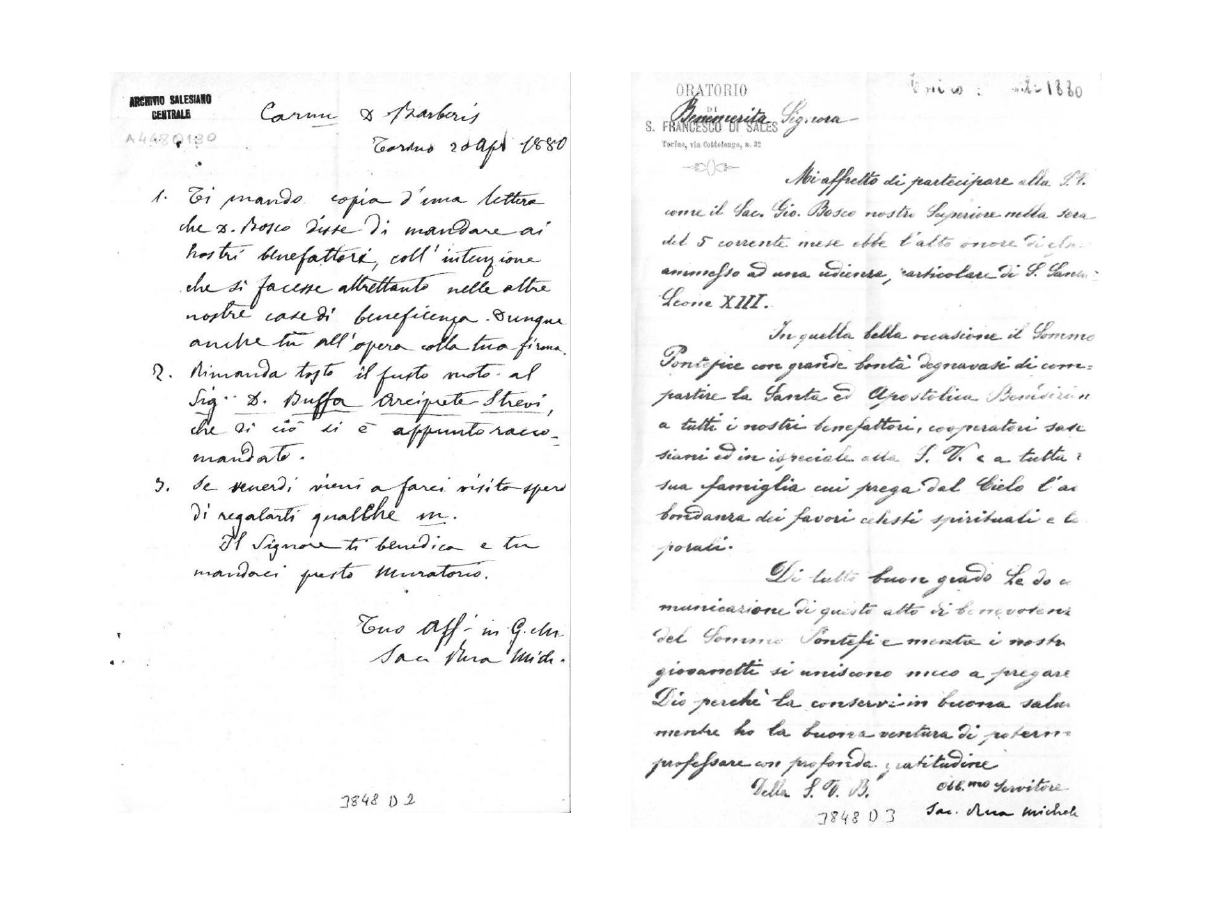 ARCHIVIO SALESIANO
CENTRALE
A4480130
Car.mo D. Barberis
Torino 20 Apl 1880
1. Ti mando copia d'una lettera
che D. Bosco disse di mandare ai
nostri benefattori, coll'intenzione
che si facesse altrettanto nelle altre
nostre case di beneficenza. Dunque
anche tu all'opera colla tua firma.
2. Rimanda tosto il
Sig. D. Buffa Arciprete Strevi,
che di ciò si è appunto racco-
mandato.
3. Se venerdì vieni a farci visita spero
di regalarti qualche m.
Il Signore ti benedica e tu
mandaci presto Muratorio.
Tuo Aff. in G.
Sac. Rua Mich.
3848 D 2
ORATORIO
DI
S. FRANCESCO DI SALES
Torino, via Cottolengo, n. 32
Torino 1880
Benemerita Signora
Mi affretto di partecipare alla S. V.
come il Sac. Gio. Bosco nostro Superiore nella sera
del 5 corrente mese ebbe l'alto onore di
ammesso ad una udienza particolare di S.
Leone XIII.
In quella bella occasione il Sommo
Pontefice con grande bontà degnavasi di com=
partire la Santa ed Apostolica Benedizion
a tutti i nostri benefattori, cooperatori sale
siani ed in ispeciale alla S. V. e a tutta
sua famiglia cui prega dal Cielo l'ab
bondanza dei favori celesti spirituali e te
porali.
Di tutto buon grado Le do c
municazione di questo alto di benevolenz
del Sommo Pontefice mentre i nostri
giovanetti si uniscono meco a pregare
Dio perchè la conservi in buona salu
mentre ho la buona ventura di poterm
professare con profonda gratitudine
Della S. V. B.
Obb.mo Servitore
Sac. Rua Michele
3848 D 3